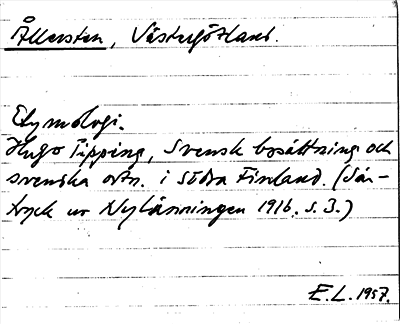 Ållersten, Västergötland.
Etymologi.
Hugo Pipping, Svensk bosättning och
svenska ortn. i södra Finland. (Sär-
tryck ur Nylänningen 1916. s. 3.)
E.L. 1957.